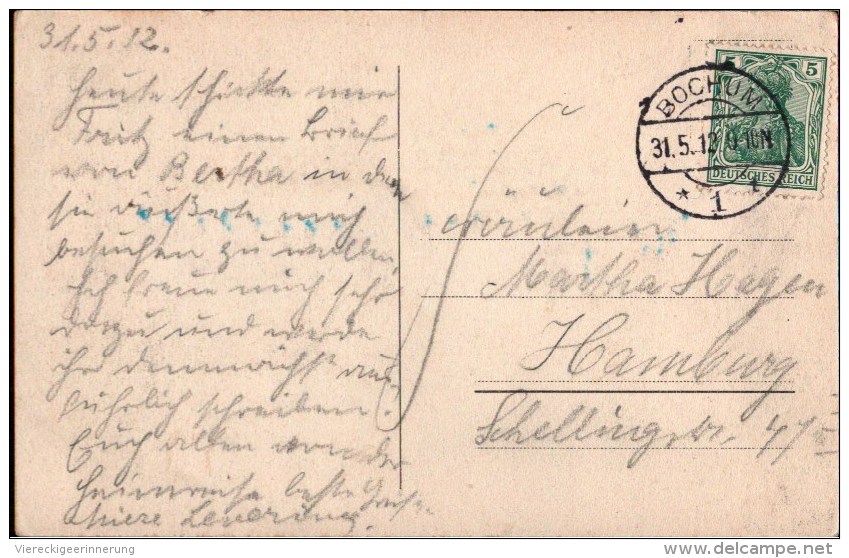 31.5.12.
Heute schickte mir
Fritz einen Brief
von Bertha in dem
sie äußerte mich
besuchen zu wollen.
Ich freue mich sehr
dazu und werde
ihr demnächst aus-
führlich schreiben.
Euch allen von der
Heimreise beste Grüße
Levering.
5
DEUTSCHES REICH
BOCHUM
31.5.12
* 1
Fräulein
Martha Hagen
Hamburg
Schellingstr. 47 III
Viereckigeerinnerung
delcampe.net